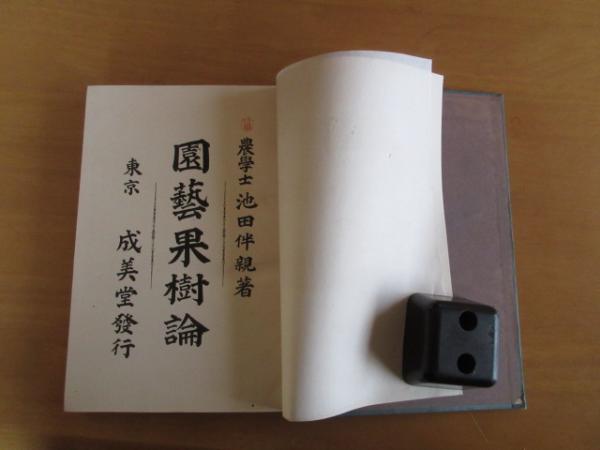 農學士 池田伴親著
園藝果樹論
東京 成美堂發行